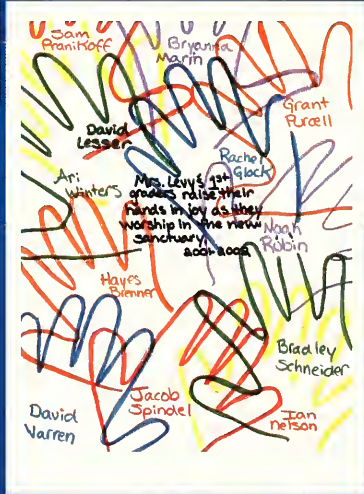 Sam
Pranikoff
Bryanna
Marin
Grant
Purcell
David
Lesser
Rachel
Glock
Ari
Winters
Mrs. Levy's 1st
graders raise their
hands in joy as they
worship in the new
sanctuary.
2001-2002
Noah
Robin
Hayes
Brenner
Bradley
Schneider
Jacob
Spindel
David
Varren
Ian
nelson